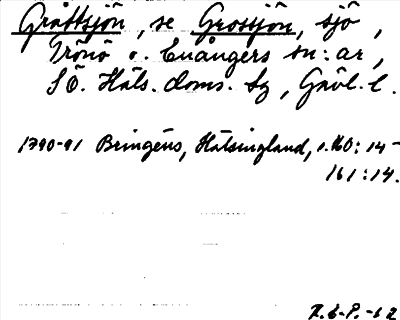 Gråttsjön, se Grossjön, sjö,
Trönö o. Enångers sn:ar,
SÖ. Häls. doms. sg, Gävl. l.
1790-91 Bringéus, Hälsingland, s. 160:14-
161:14.